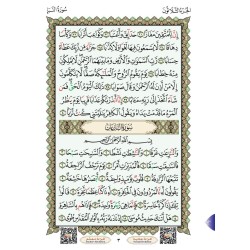 سورة النبإ
الجزء الثلاثون
إِنَّ لِلْمُتَّقِينَ مَفَازًا حَدَآئِقَ وَأَعْنَٰبًا وَكَوَاعِبَ أَتْرَابًا وَكَأْسًا
دِهَاقًا لَّا يَسْمَعُونَ فِيهَا لَغْوًا وَلَا كِذَّٰبًا جَزَآءً مِّن رَّبِّكَ عَطَآءً
حِسَابًا رَّبِّ ٱلسَّمَٰوَٰتِ وَٱلْأَرْضِ وَمَا بَيْنَهُمَا ٱلرَّحْمَٰنِ لَا يَمْلِكُونَ
مِنْهُ خِطَابًا يَوْمَ يَقُومُ ٱلرُّوحُ وَٱلْمَلَٰٓئِكَةُ صَفًّا لَّا يَتَكَلَّمُونَ
إِلَّا مَنْ أَذِنَ لَهُ ٱلرَّحْمَٰنُ وَقَالَ صَوَابًا ذَٰلِكَ ٱلْيَوْمُ ٱلْحَقُّ فَمَن
شَآءَ ٱتَّخَذَ إِلَىٰ رَبِّهِۦ مَـَٔابًا إِنَّآ أَنذَرْنَٰكُمْ عَذَابًا قَرِيبًا يَوْمَ يَنظُرُ
ٱلْمَرْءُ مَا قَدَّمَتْ يَدَاهُ وَيَقُولُ ٱلْكَافِرُ يَٰلَيْتَنِى كُنتُ تُرَٰبًا
سورة النازعات
بِسْمِ ٱللَّهِ ٱلرَّحْمَٰنِ ٱلرَّحِيمِ
وَٱلنَّٰزِعَٰتِ غَرْقًا وَٱلنَّٰشِطَٰتِ نَشْطًا وَٱلسَّٰبِحَٰتِ سَبْحًا
فَٱلسَّٰبِقَٰتِ سَبْقًا فَٱلْمُدَبِّرَٰتِ أَمْرًا يَوْمَ تَرْجُفُ ٱلرَّاجِفَةُ
تَتْبَعُهَا ٱلرَّادِفَةُ قُلُوبٌ يَوْمَئِذٍ وَاجِفَةٌ أَبْصَٰرُهَا خَٰشِعَةٌ
يَقُولُونَ أَءِنَّا لَمَرْدُودُونَ فِى ٱلْحَافِرَةِ أَءِذَا كُنَّا عِظَٰمًا نَّخِرَةً
قَالُوا۟ تِلْكَ إِذًا كَرَّةٌ خَاسِرَةٌ فَإِنَّمَا هِىَ زَجْرَةٌ وَٰحِدَةٌ فَإِذَا
هُم بِٱلسَّاهِرَةِ هَلْ أَتَىٰكَ حَدِيثُ مُوسَىٰٓ
٣